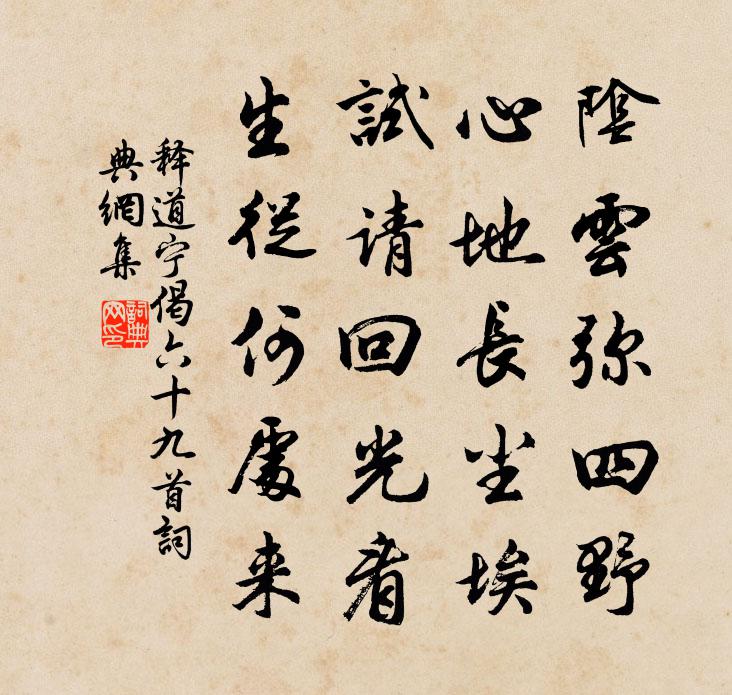 陰雲弥四野
心地長尘埃
試请回光看
生從何處来
释道宁偈六十九首詞
典網集
詞典
网印